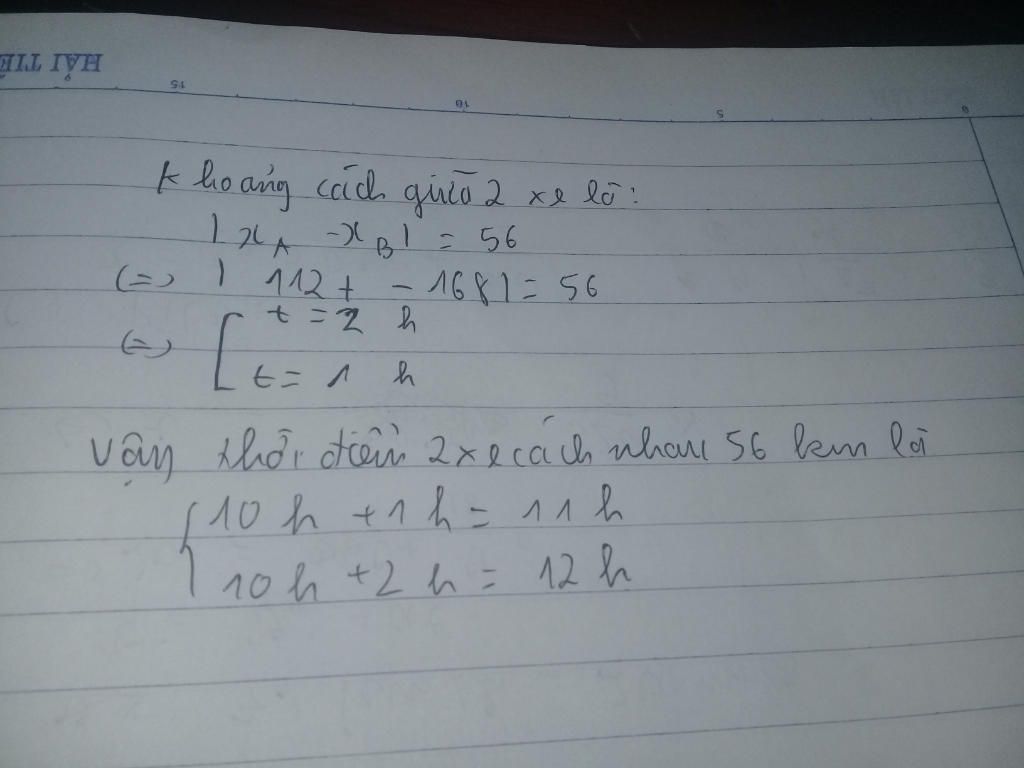 HẢI TIẾ
15 10 5 0
Khoảng cách giữa 2 xe là:
|x_A - x_B| = 56
(=) | 112t - 168| = 56
(=) [ t = 2 h
t = 1 h
Vậy thời điểm 2 xe cách nhau 56 km là
{ 10 h + 1 h = 11 h
10 h + 2 h = 12 h